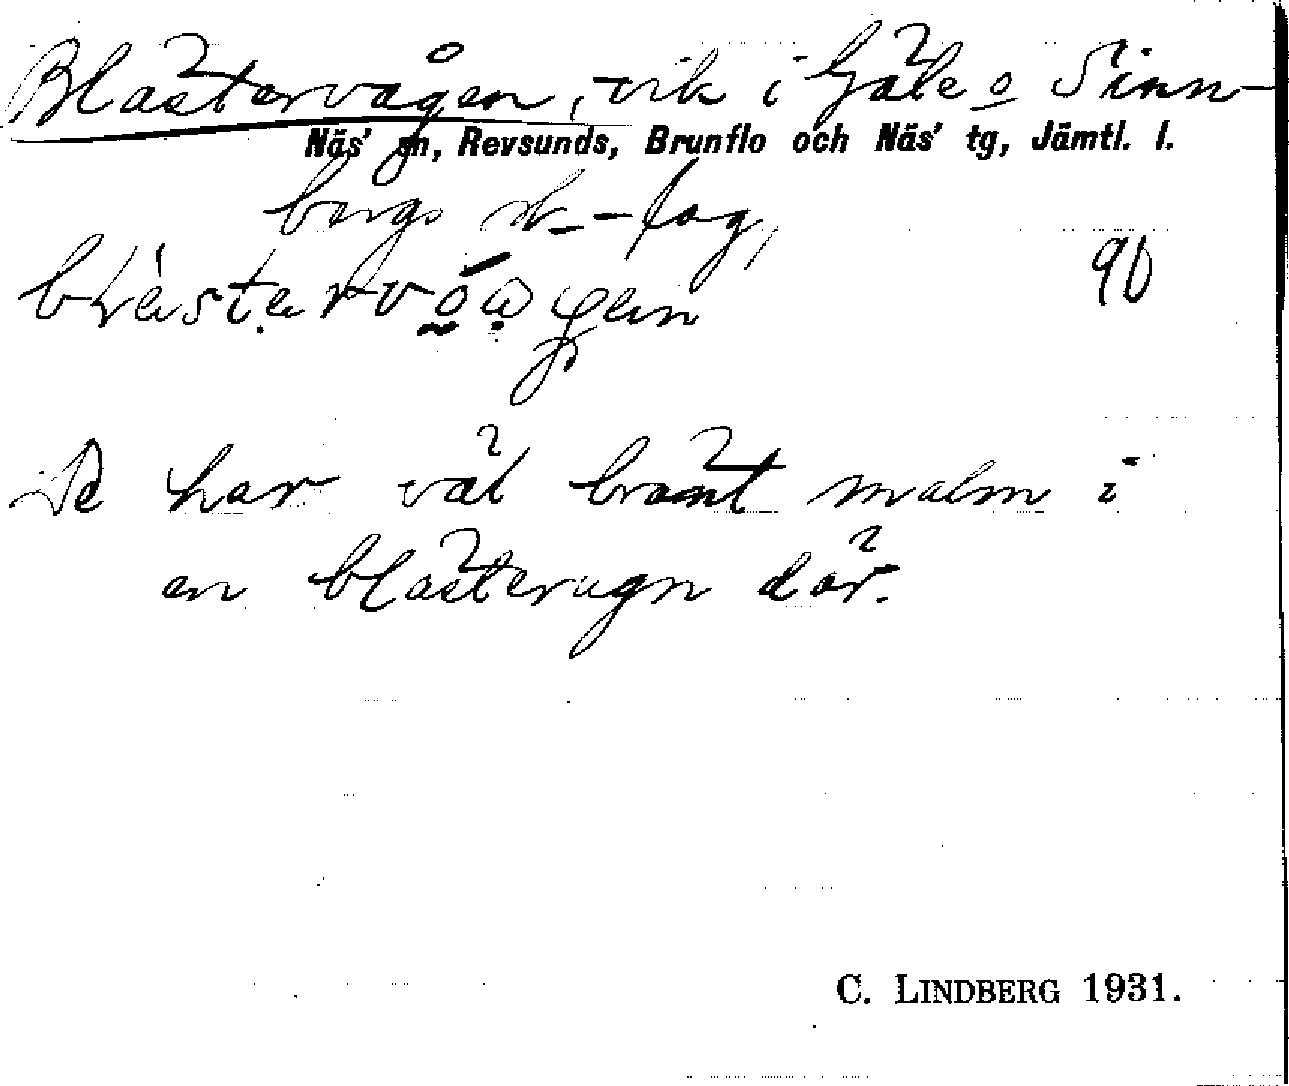 Blästervågen, vik i Gäle o Sinn-
Näs' sn, Revsunds, Brunflo och Näs' tg, Jämtl. l.
bergs sk-lag,
90
De har väl bränt malm i
en blästerugn där.
C. LINDBERG 1931.